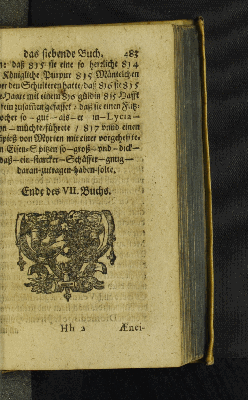 das siebende Buch. 483
daß 815 sie eine so herzlich 814
Königliche Purpur 815 Mäntelchen
den Schulteren hatte/ daß 816 sie 815
Haare mit einem 816 güldin 815 Hafft
fein zusam̃en gefasset/ daß sie einen
ocher so-gut-als-er in-Lycia-
müchte/führete/ 817 vnnd einen
spieß von Myrten mit einer vorgehenk-
Eisen-Spitzen so-groß-vnd-dick-
daß-ein-starcker-Schäffer-gnug-
daran-zutragen-haben-solte.
Ende des VII. Buchs.
Hh 2 Ænei-